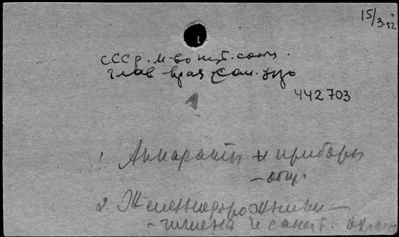 15/3.52
СССР. М-во пут. сообщ.
Глав врач. сан. упр
442 703
1. Аппараты и приборы
- общ.
2. Железнодорожники -
- гигиена и санит. охрана